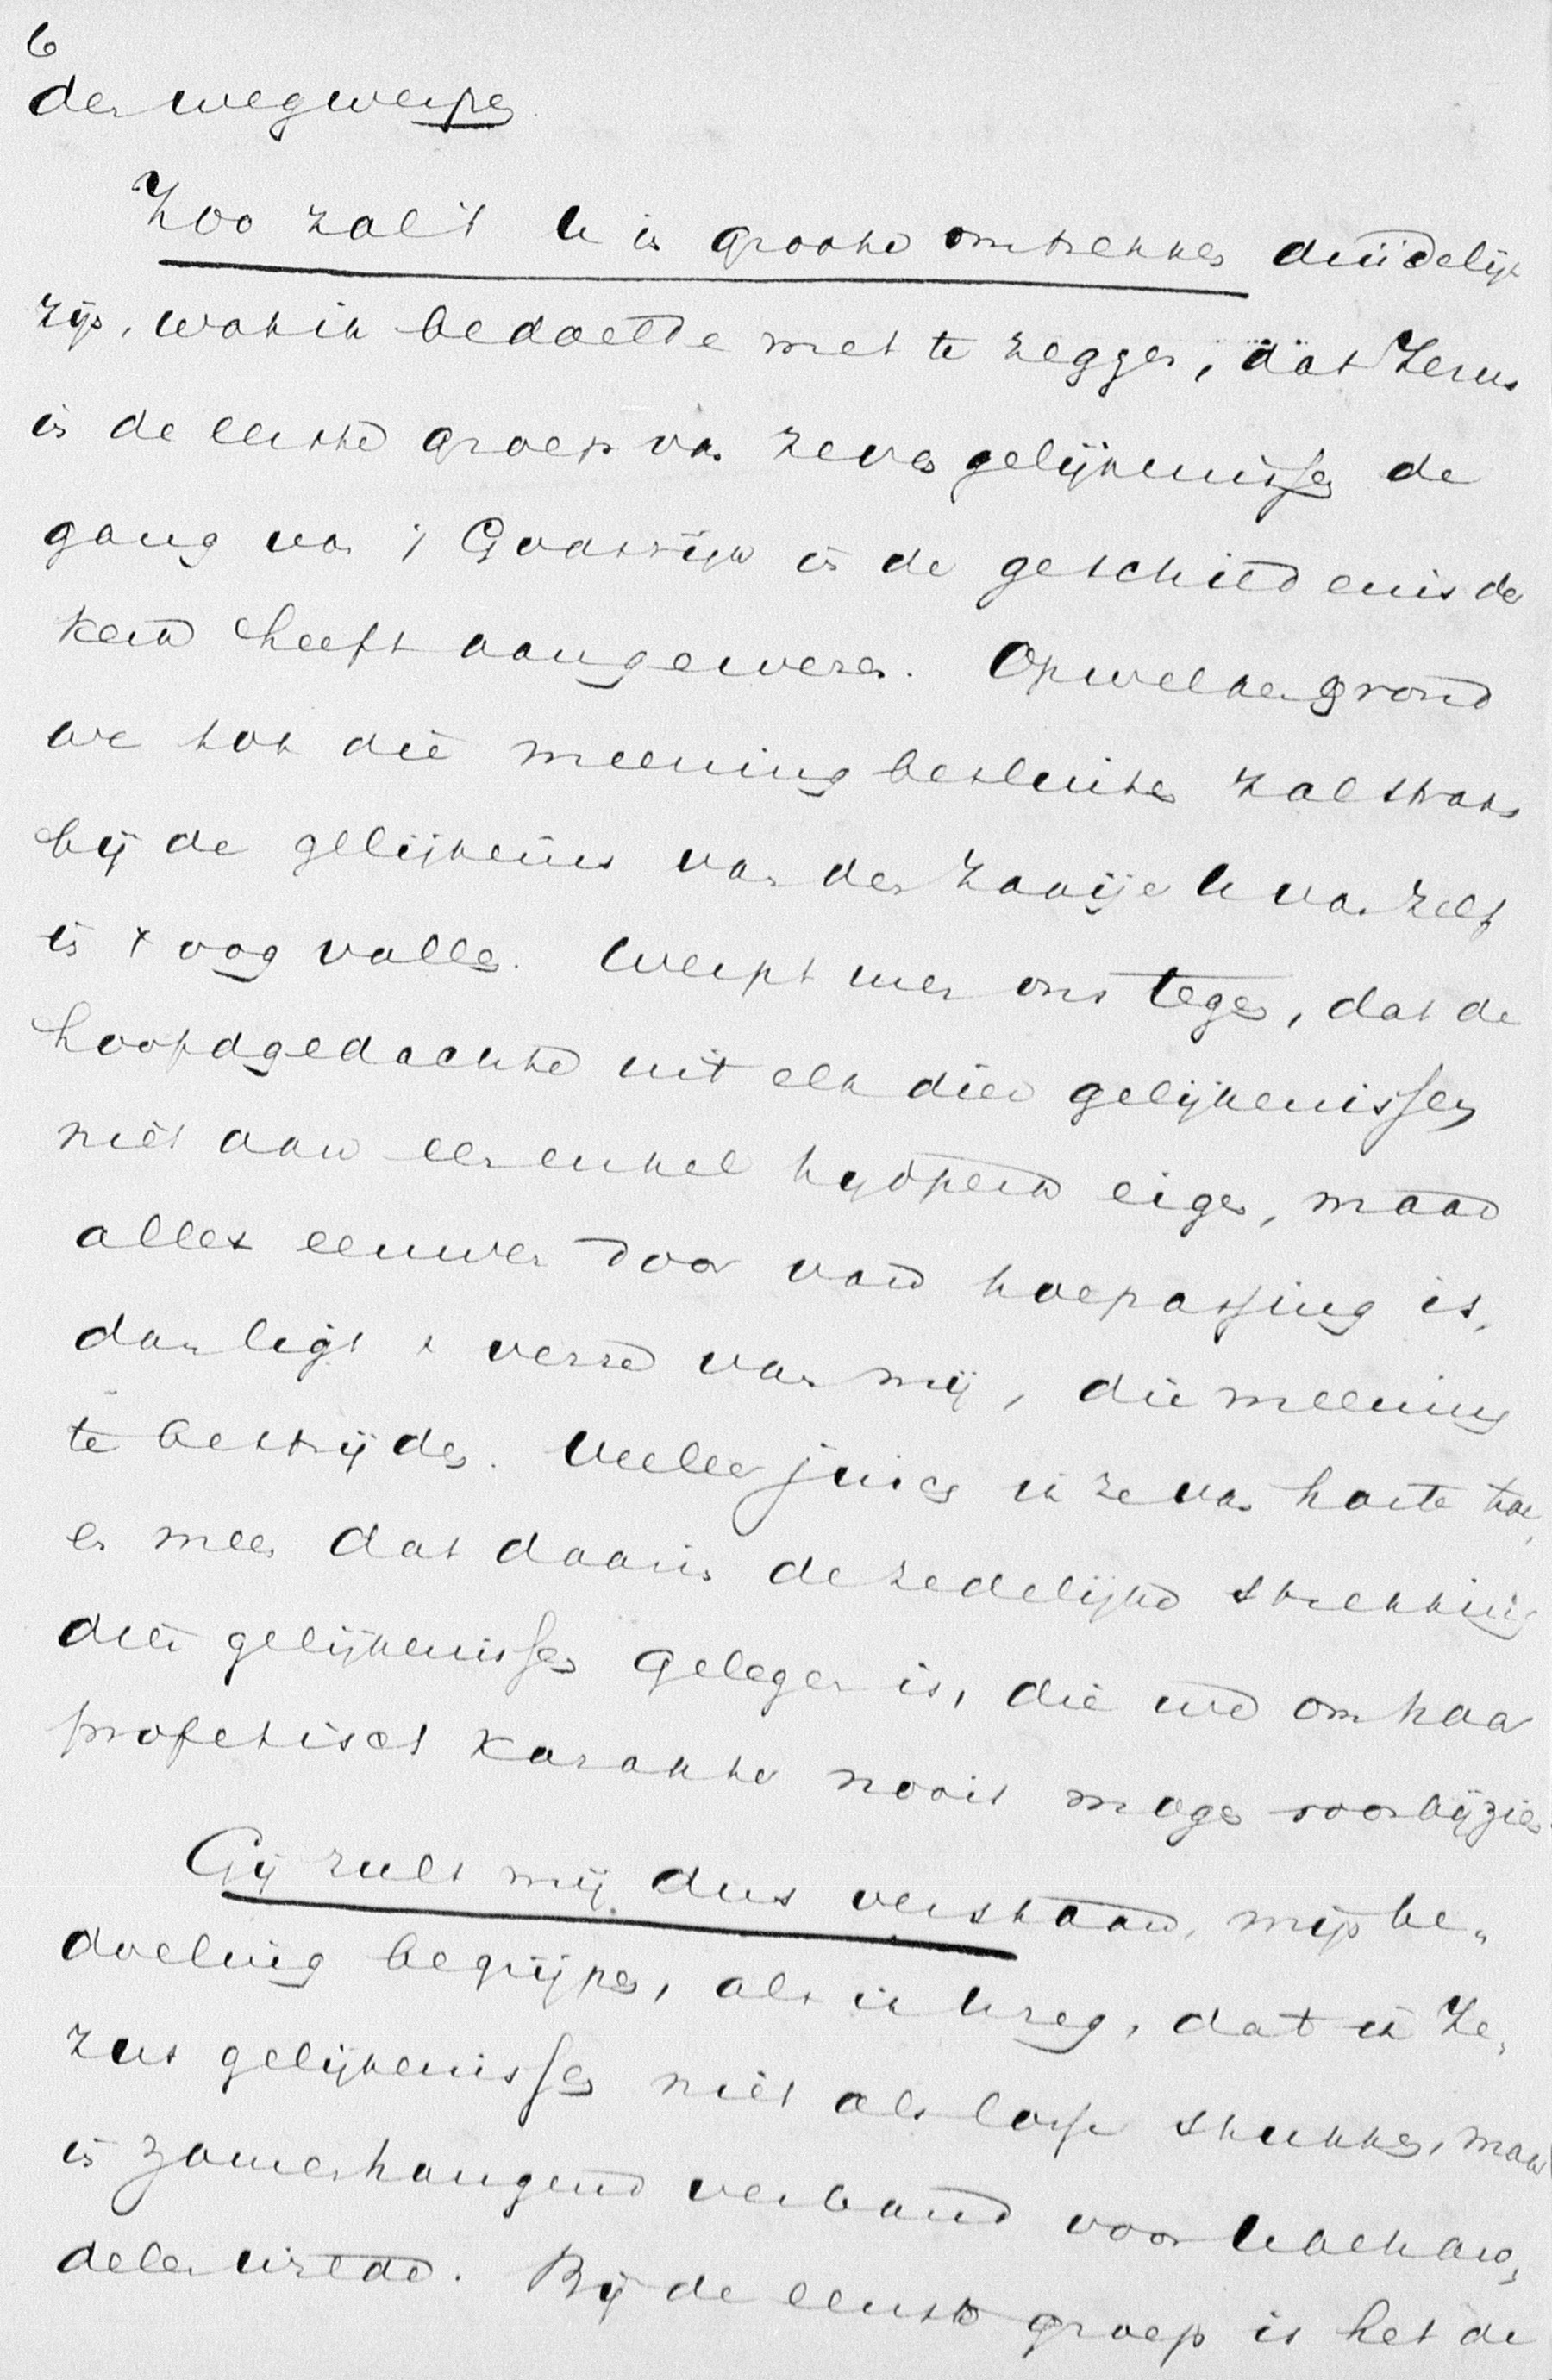 6
den wegwerpen.
Zoo zal 't U in groote omtrekken duidelijk
zijn, wat ik bedoelde met te zeggen, dat Jezus
in de eerste groep van zeven gelijkenissen de
gang van 't Godsrijk in de geschiedenis der
kerk heeft aangewezen. Op welken grond
we tot die meening besluiten zal straks
bij de gelijkenis van den zaaijer U van zelf
in 't oog vallen. Werpt men ons tegen, dat de
hoofdgedachte uit elk dier gelijkenissen
niet aan een enkel tijdperk eigen, maar
alle eeuwen door van toepassing is,
dan ligt 't verre van mij, die meening
te bestrijden. Veeleer juich ik ze van harte toe,
en meen dat daarin de zedelijke strekking
dier gelijkenissen gelegen is, die we om haar
profetisch karakter nooit mogen voorbijzien.
Gij zult mij dus verstaan, mijn be-
doeling begrijpen, als ik U zeg, dat ik Je-
zus gelijkenissen niet als losse stukken, maar
in zamenhangend verband voor U behan-
delen wilde. Bij de eerste groep is het de